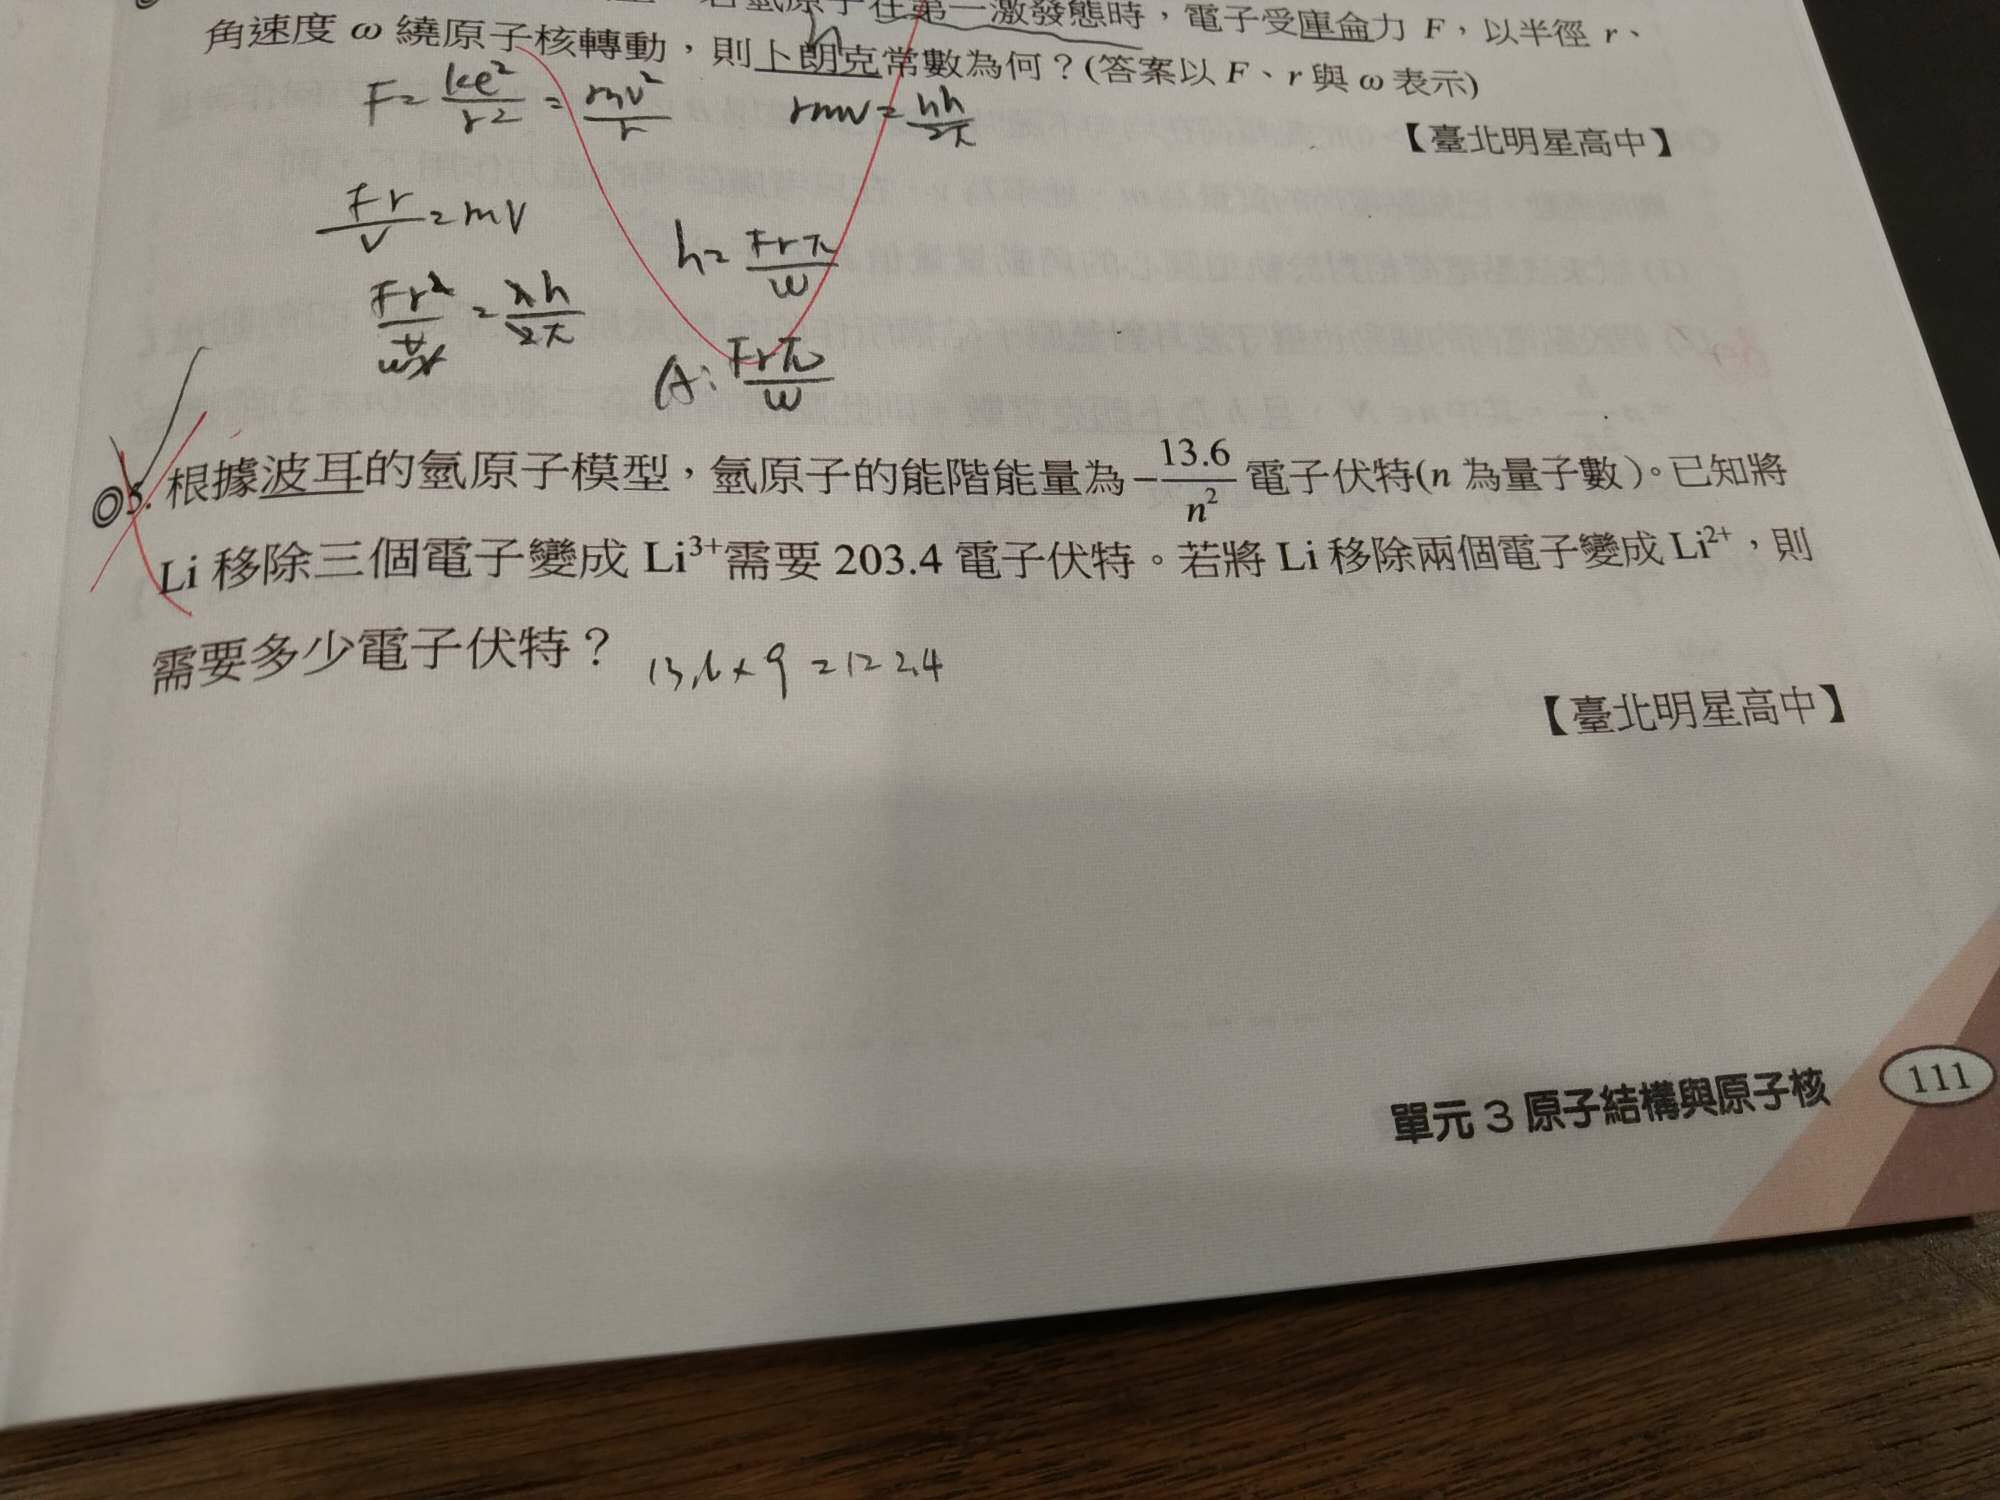 若氫原子在第一激發態時，電子受庫侖力 F，以半徑 r、
角速度 ω 繞原子核轉動，則卜朗克常數為何？(答案以 F、r 與 ω 表示)
F = ke²/r² = mv²/r  rmv = nh/2π
【臺北明星高中】
Fr/v = mv
h = Frπ/w
A: Frπ/w
◎5. 根據波耳的氫原子模型，氫原子的能階能量為 −13.6/n² 電子伏特(n 為量子數)。已知將
Li 移除三個電子變成 Li³⁺需要 203.4 電子伏特。若將 Li 移除兩個電子變成 Li²⁺，則
需要多少電子伏特？ 13.6 × 9 = 122.4
【臺北明星高中】
單元 3 原子結構與原子核 111